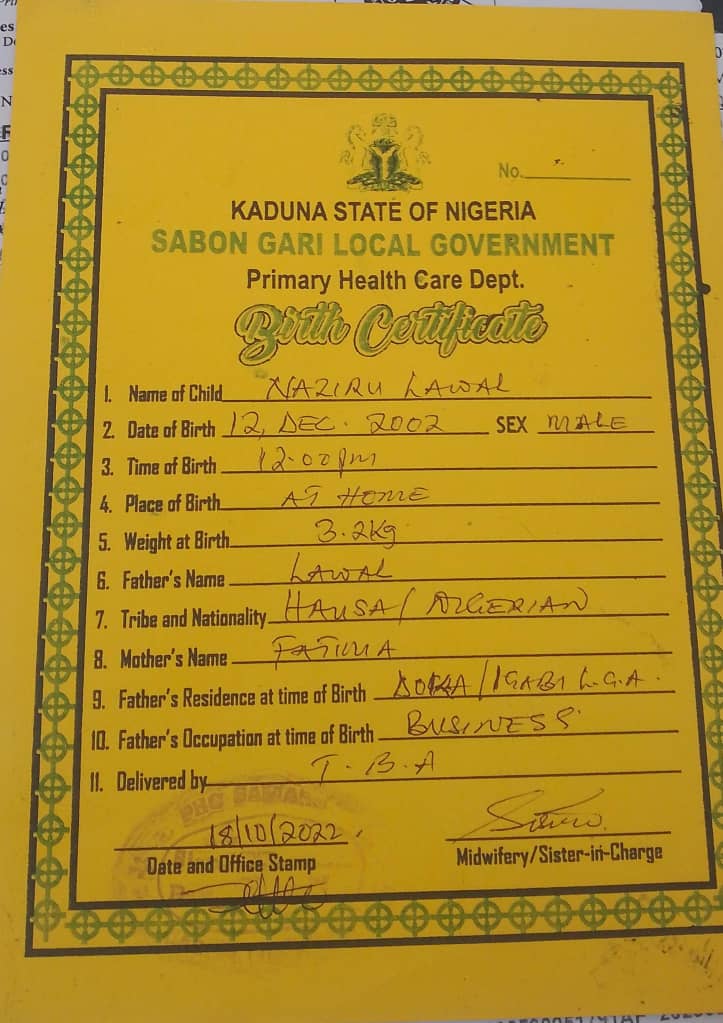 No.
KADUNA STATE OF NIGERIA
SABON GARI LOCAL GOVERNMENT
Primary Health Care Dept.
Birth Certificate
1. Name of Child NAZIRU LAWAL
2. Date of Birth 12, DEC. 2002 SEX MALE
3. Time of Birth 12.00pm
4. Place of Birth AT HOME
5. Weight at Birth 3.2kg
6. Father's Name LAWAL
7. Tribe and Nationality HAUSA/ NIGERIAN
8. Mother's Name FATIMA
9. Father's Residence at time of Birth DOKA/IGABI L.G.A.
10. Father's Occupation at time of Birth BUSINESS
11. Delivered by T.B.A
PHC SAMARU
18/10/2022
Date and Office Stamp
Midwifery/Sister-in-Charge